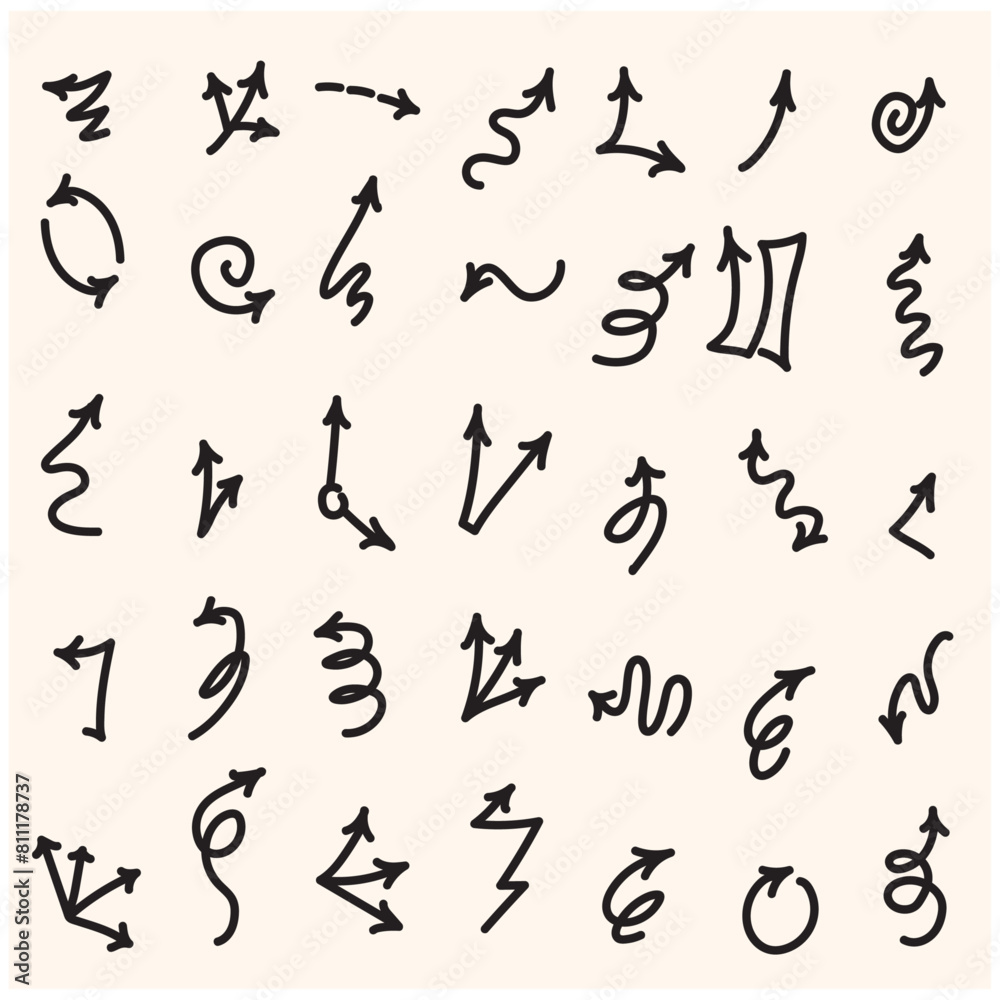 Adobe Stock | #811178737